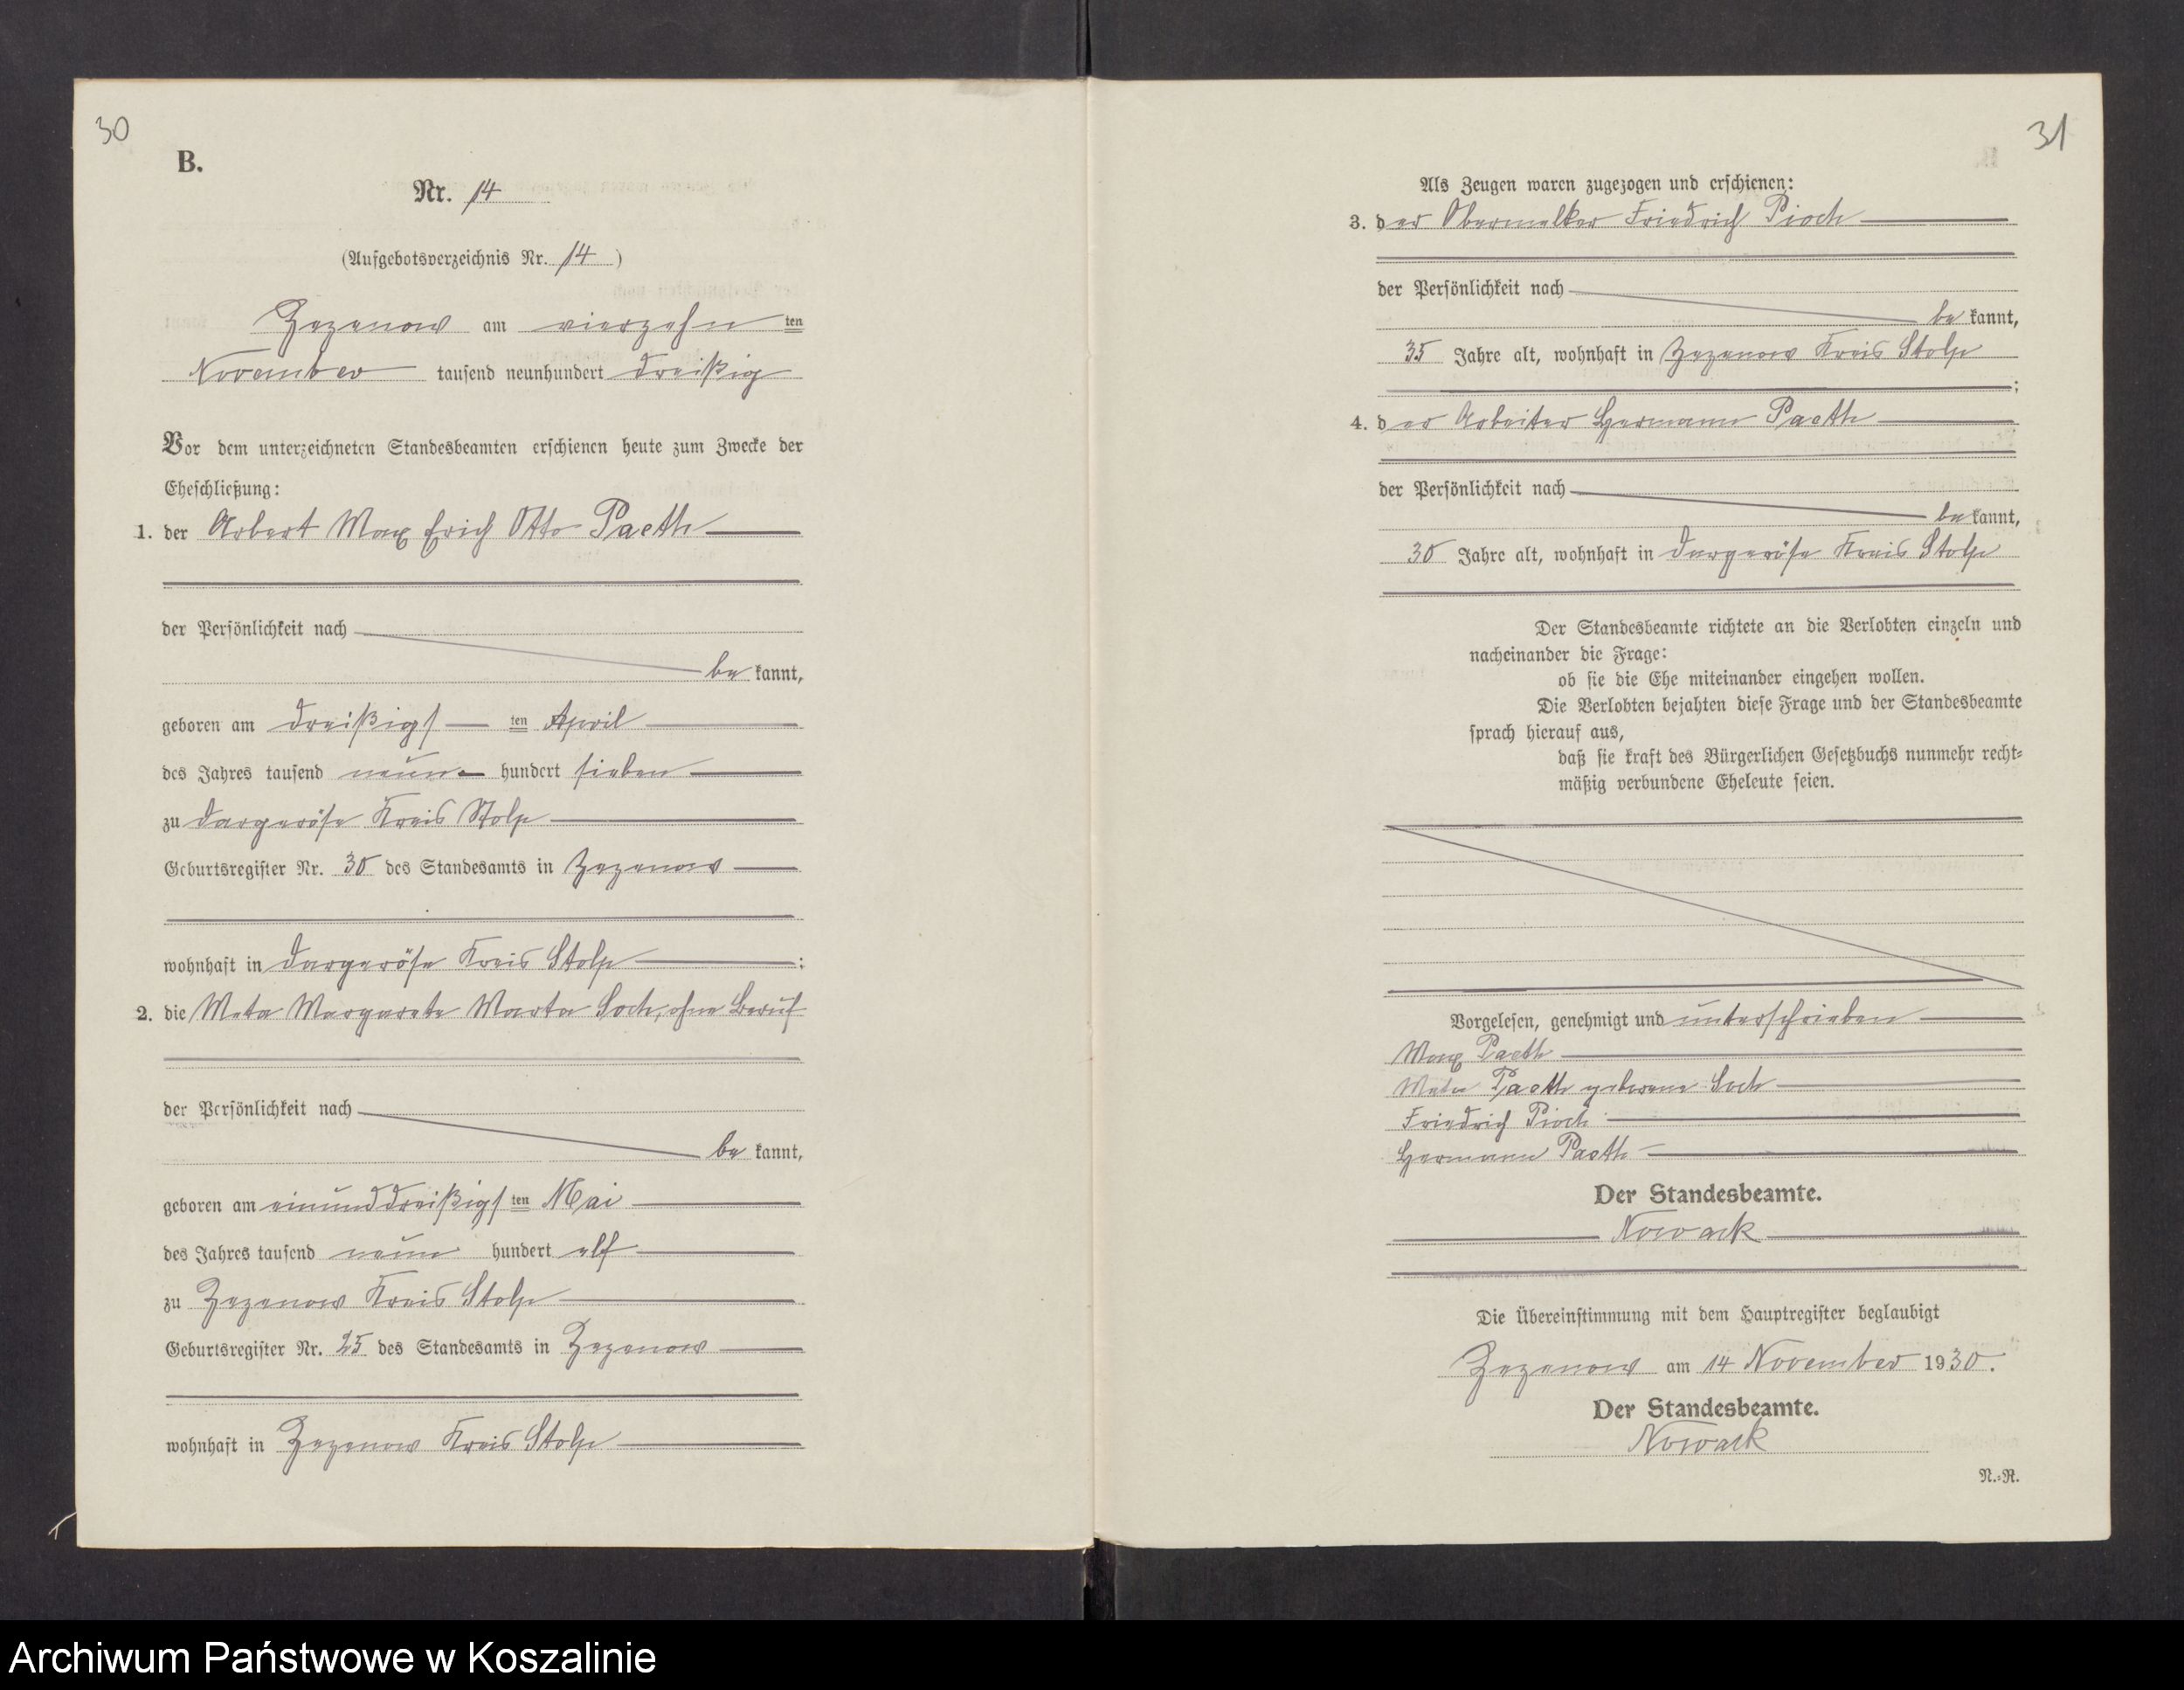 30
B.
Nr. 14
(Aufgebotsverzeichnis Nr. 14)
Zezenow am vierzehn ten
November tausend neunhundert dreißig
Vor dem unterzeichneten Standesbeamten erschienen heute zum Zwecke der
Eheschließung:
1. der Max Erich Otto Paeth
der Persönlichkeit nach
be kannt,
geboren am dreißigs ten April
des Jahres tausend neun hundert sieben
zu Dargeröse Kreis Stolp
Geburtsregister Nr. 30 des Standesamts in Zezenow
wohnhaft in Dargeröse Kreis Stolp ;
2. die Meta Margarete Marta Soch, ohne Beruf
der Persönlichkeit nach
be kannt,
geboren am einunddreißigs ten Mai
des Jahres tausend neun hundert elf
zu Zezenow Kreis Stolp
Geburtsregister Nr. 25 des Standesamts in Zezenow
wohnhaft in Zezenow Kreis Stolp
31
Als Zeugen waren zugezogen und erschienen:
3. der Obermelker Friedrich Pioch
der Persönlichkeit nach
be kannt,
35 Jahre alt, wohnhaft in Zezenow Kreis Stolp
;
4. der Arbeiter Hermann Paeth
der Persönlichkeit nach
be kannt,
30 Jahre alt, wohnhaft in Dargeröse Kreis Stolp
Der Standesbeamte richtete an die Verlobten einzeln und
nacheinander die Frage:
ob sie die Ehe miteinander eingehen wollen.
Die Verlobten bejahten diese Frage und der Standesbeamte
sprach hierauf aus,
daß sie kraft des Bürgerlichen Gesetzbuchs nunmehr recht-
mäßig verbundene Eheleute seien.
Vorgelesen, genehmigt und unterschrieben
Max Paeth
Meta Paeth geborene Soch
Friedrich Pioch
Hermann Paeth
Der Standesbeamte.
Nowack
Die Übereinstimmung mit dem Hauptregister beglaubigt
Zezenow am 14 November 1930.
Der Standesbeamte.
Nowack
N.-R.
Archiwum Państwowe w Koszalinie